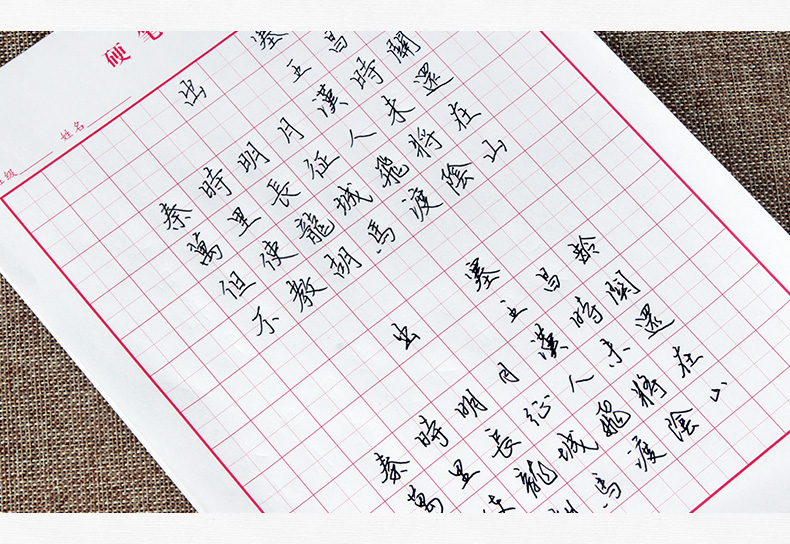 硬笔
级 姓名
出塞
王昌
秦時明月漢時關
萬里長征人未還
但使龍城飛將在
不教胡馬渡陰山
出塞
王昌龄
秦時明月漢時関
萬里長征人未還
使龍城飛將在
馬渡陰山